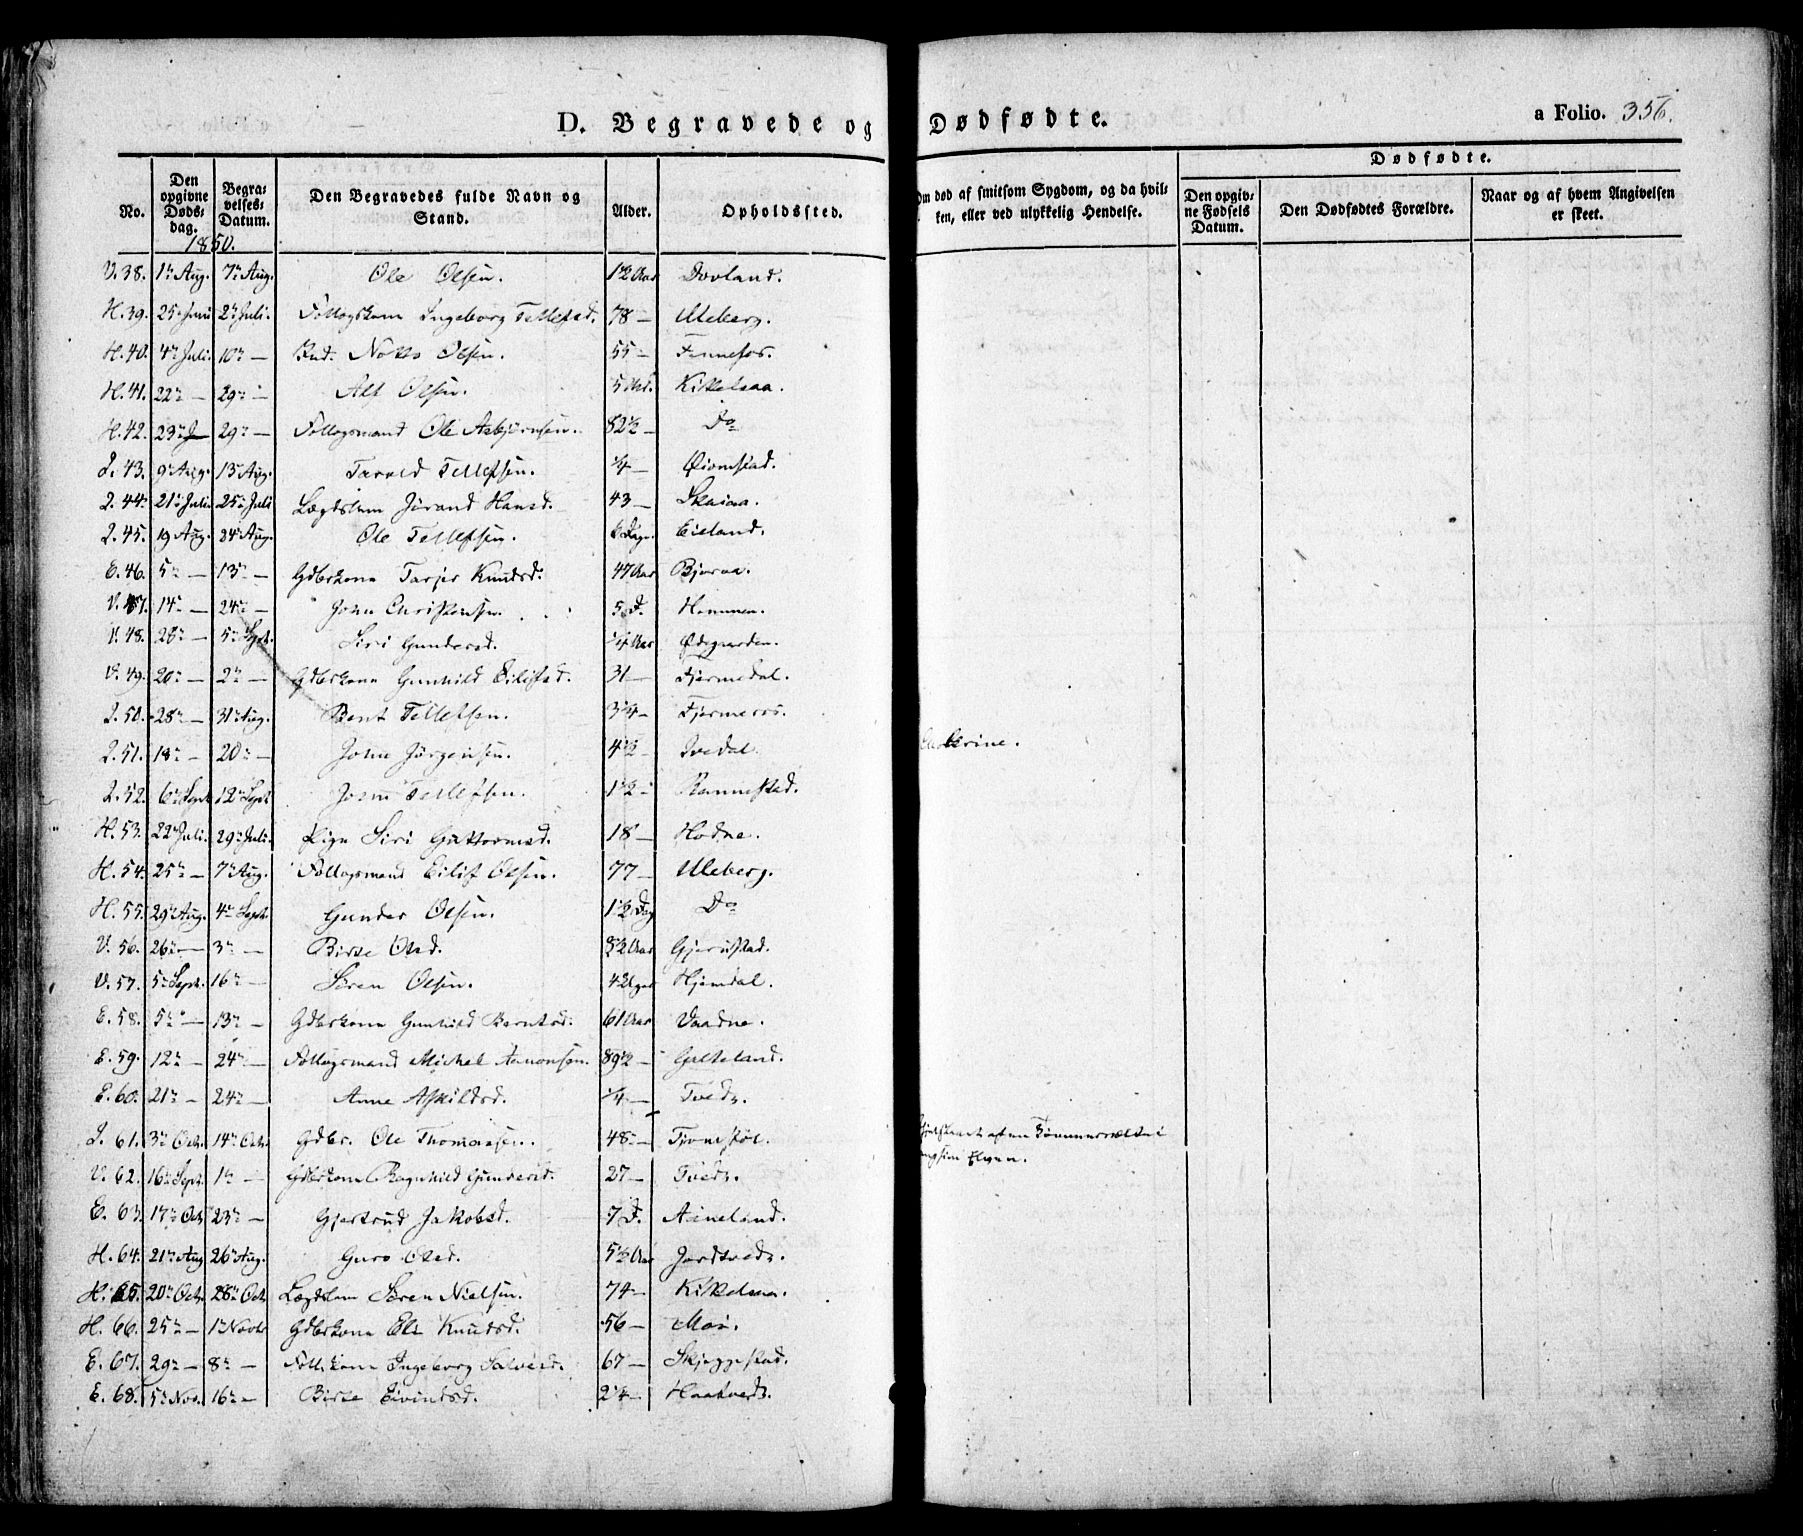 D. Begravede og Dødfødte.
a Folio. 356.
No.
Den opgivne Døds-dag.
Begra-velses-Datum.
Den Begravedes fulde Navn og Stand.
Alder.
Opholdssted.
Om død af smitsom Sygdom, og da hvil-ken, eller ved ulykkelig Hendelse.
Dødfødte.
Den opgiv-ne Fødsels Datum.
Den Dødfødtes Forældre.
Naar og af hvem Angivelsen er skeet.
1850.
V. 38. 1te Aug. 7de Aug. Ole Olsen. 1½ Aar Dovland.
H. 39. 25de Juni 2den Juli. Follogskone Ingeborg Tellefsd. 78 — Uleberg.
H. 40. 4de Juli. 10de — Olsen. 55 — Fennefos.
H. 41. 22de — 29de — Alf Olsen. Kikkelsaa.
H. 42. 23de 29de — Follogsmand Ole Asbjørnsen. 82½ — Do
I. 43. 9de Aug. 13de Aug. Tarald Tellefsen. ¼ — Øiomstad.
I. 44. 21de Juli. 25de Juli Lægdslem Jørand Hansd. 43 — Skaiaa.
I. 45. 19 Aug. 24de Aug. Ole Tellefsen. 6 Dage. Eieland.
E. 46. 5te — 13de — Gdbrkone Tarjer Knudsd. 47 Aar Bjoraa.
V. 47. 14de — 24de — John Christensen. 5 D. Hommen.
V. 48. 28de — 5te Sept. Siri Gundersd. ¼ Aar Ødegaarden.
V. 49. 20de — 2den — Gdbrkone Gunhild Eilifsd. 31 — Fjermedal.
I. 50. 28de — 31te Aug. Bent Tellefsen. 3¼ — Fjermeros.
I. 51. 18de — 20de — John Jørgensen. 4½ — Ivedal. Cholerine.
I. 52. 6te Sept. 12te Sept. Tellefsen. 1½ — Rannestad.
H. 53. 22de Juli. 29de Juli. Pige Siri Guttormsd. 18 — Hodne.
H. 54. 25de — 7de Aug. Follogsmand Eilif Olsen. 77 — Uleberg.
H. 55. 29de Aug. 4de Sept. Gunder Olsen. 1½ Dag Do
V. 56. 26de — 3de — Birte Olsd. 8½ Aar Gjerustad.
V. 57. 5te Sept. 16de — Søren Olsen. 4 Uger Hjemdal.
E. 58. 5te — 13de — Gdbrkone Gunhild Berntsd. 61 Aar Vaadne.
E. 59. 12te — 24de — Follogsmand Michel Aanonsen. 89½ — Galteland.
E. 60. 21de — 24de — Anne Askildsd. ¼ — Tvedt.
I. 61. 3de Octr. 14de Octr. Gdbr. Ole Thomassen. 48 — Tjomstøl. af en Tømmervælte i Elven.
V. 62. 16de Sept. 1te — Gdbrkone Ragnhild Gundersd. 27 — Tvedt.
E. 63. 17de Oct. 23de — Gjertrud Jakobsd. 7 D. Aineland.
H. 64. 21de Aug. 26de Aug. Guro Olsd. 5½ Aar Jordtvedt.
H. 65. 20de Octr. 28de Octr. Lægdslem Søren Nielsen. 74 — Kikkelsaa.
H. 66. 25de — 1te Novbr. Gdbrkone Eli Knudsd. 56 — Moi.
E. 67. 29de — 8de — Foll.kone Ingeborg Salvesd. 67 — Skjeggestad.
E. 68. 5te Nov. 16de — Birte Eivindsd. 2¼ — Haatvedt.